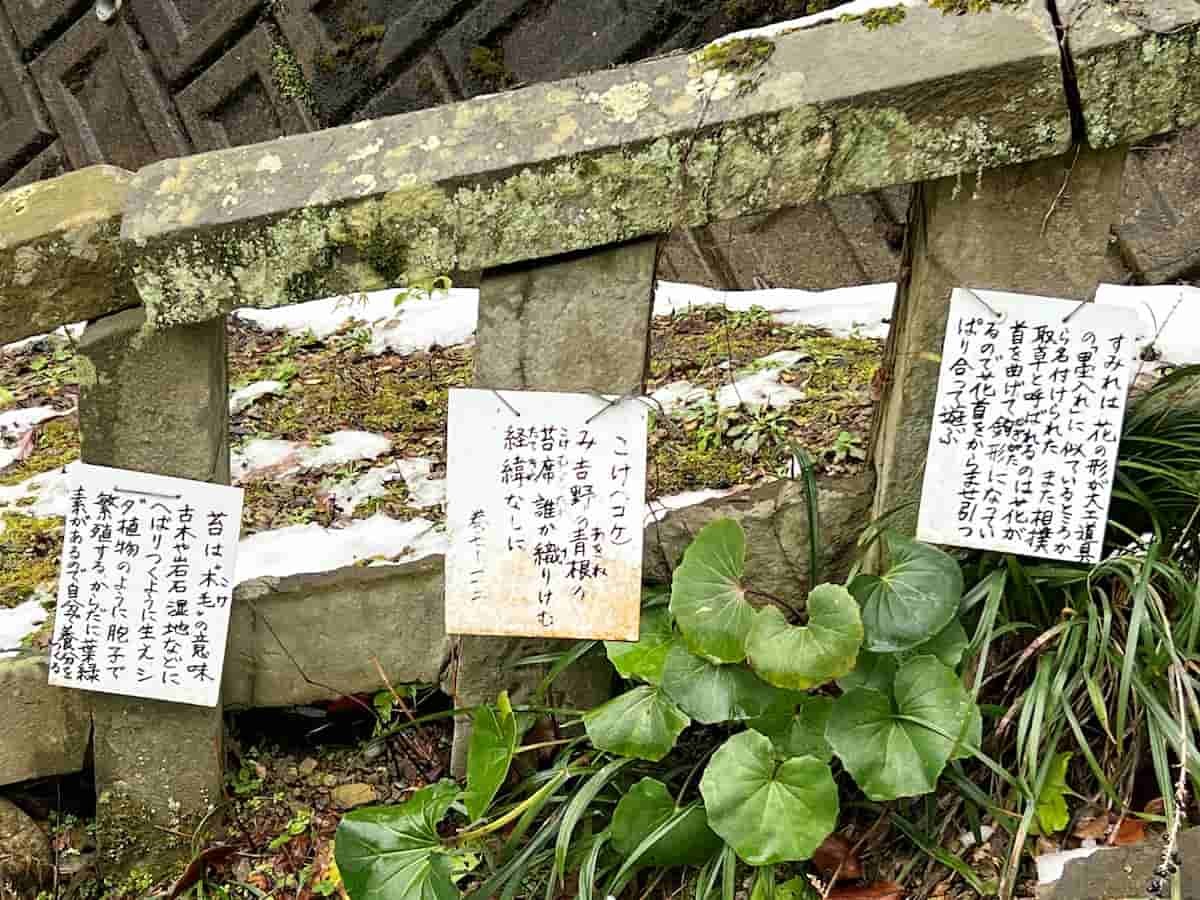 すみれは 花の形が大工道具
の「墨入れ」に似ているところか
ら名付けられた また相撲
取草と呼ばれるのは花が
首を曲げて 鉤形になってい
るので花首をからませ引っ
ぱり合って遊ぶ
こけ(コケ)
あをね
み吉野の青根の
こけむしろ
苔席 誰か織りけむ
たてぬき
経緯なしに
コケ
苔は"木毛"の意味
古木や岩石 湿地などに
へばりつくように生え シ
ダ植物のように 胞子で
繁殖する からだに葉緑
素があるので自分で養分を
つくる